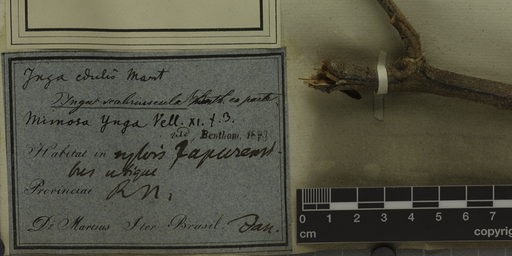 Ynga edulis Mart
Ynga scabriuscula Benth. ex parte
Mimosa Ynga Vell. XI. t. 3.
vid. Bentham, 1873
Habitat in sylvis Japurens.
bus utique
Provinciae R. N.
Dr Martius Iter Brasil. Jan.
0 1 2 3 4 5 6 7
cm copyrig